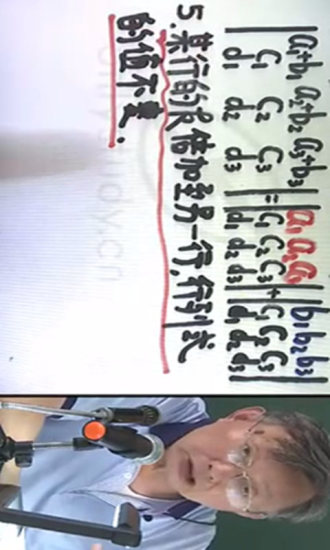 |a₁+b₁ a₂+b₂ a₃+b₃|
|c₁ c₂ c₃|
|d₁ d₂ d₃|
=
|a₁ a₂ a₃|
|c₁ c₂ c₃|
|d₁ d₂ d₃|
+
|b₁ b₂ b₃|
|c₁ c₂ c₃|
|d₁ d₂ d₃|
5.某行的k倍加至另一行,行列式
的值不变.